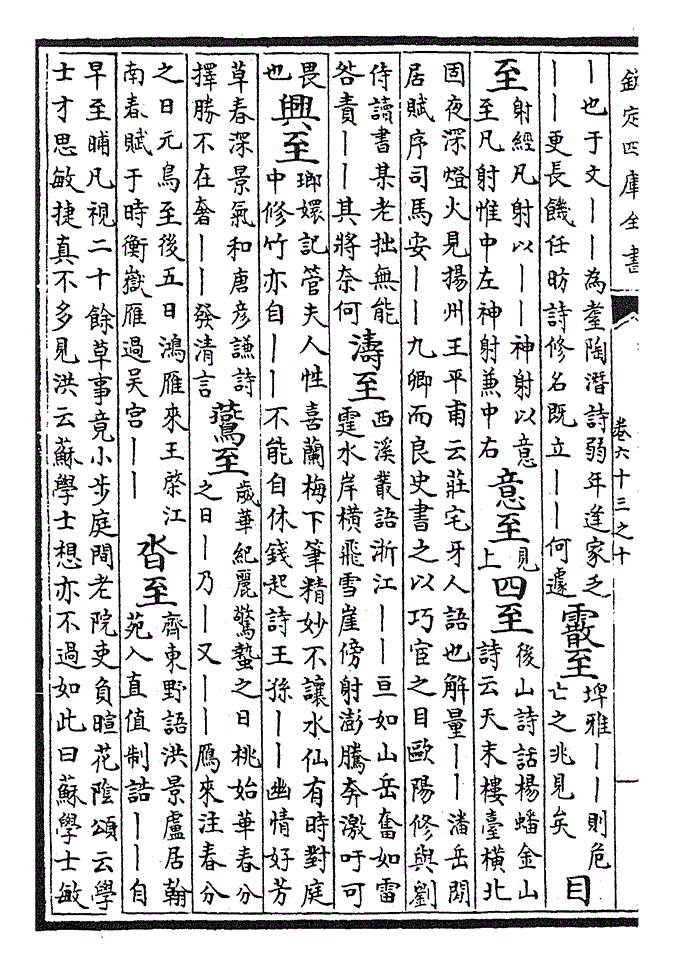 欽定四庫全書
卷六十三之十
｜也于文｜｜為耋陶潛詩弱年逢家乏
｜｜更長饑任昉詩修名既立｜｜何遽
霰至
埤雅｜｜則危
亡之兆見矣
目
至
射經凡射以｜｜神射以意
至凡射惟中左神射兼中右
意至
見
上
四至
後山詩話楊蟠金山
詩云天末樓臺橫北
固夜深燈火見揚州王平甫云莊宅牙人語也解量｜｜潘岳閒
居賦序司馬安｜｜九卿而良史書之以巧宦之目歐陽修與劉
侍讀書某老拙無能
咎責｜｜其將奈何
濤至
西溪叢語浙江｜｜亘如山岳奮如雷
霆水岸橫飛雪崖傍射澎騰奔激吁可
畏
也
興至
瑯嬛記管夫人性喜蘭梅下筆精妙不讓水仙有時對庭
中修竹亦自｜｜不能自休錢起詩王孫｜｜幽情好芳
草春深景氣和唐彥謙詩
擇勝不在奢｜｜發清言
鷰至
歲華紀麗驚蟄之日桃始華春分
之日｜乃｜又｜｜鴈來注春分
之日元鳥至後五日鴻雁來王棨江
南春賦于時衡嶽雁過吳宮｜｜
沓至
齊東野語洪景盧居翰
苑入直值制誥｜｜自
早至晡凡視二十餘草事竟小步庭間老院吏負暄花陰頌云學
士才思敏捷真不多見洪云蘇學士想亦不過如此曰蘇學士敏